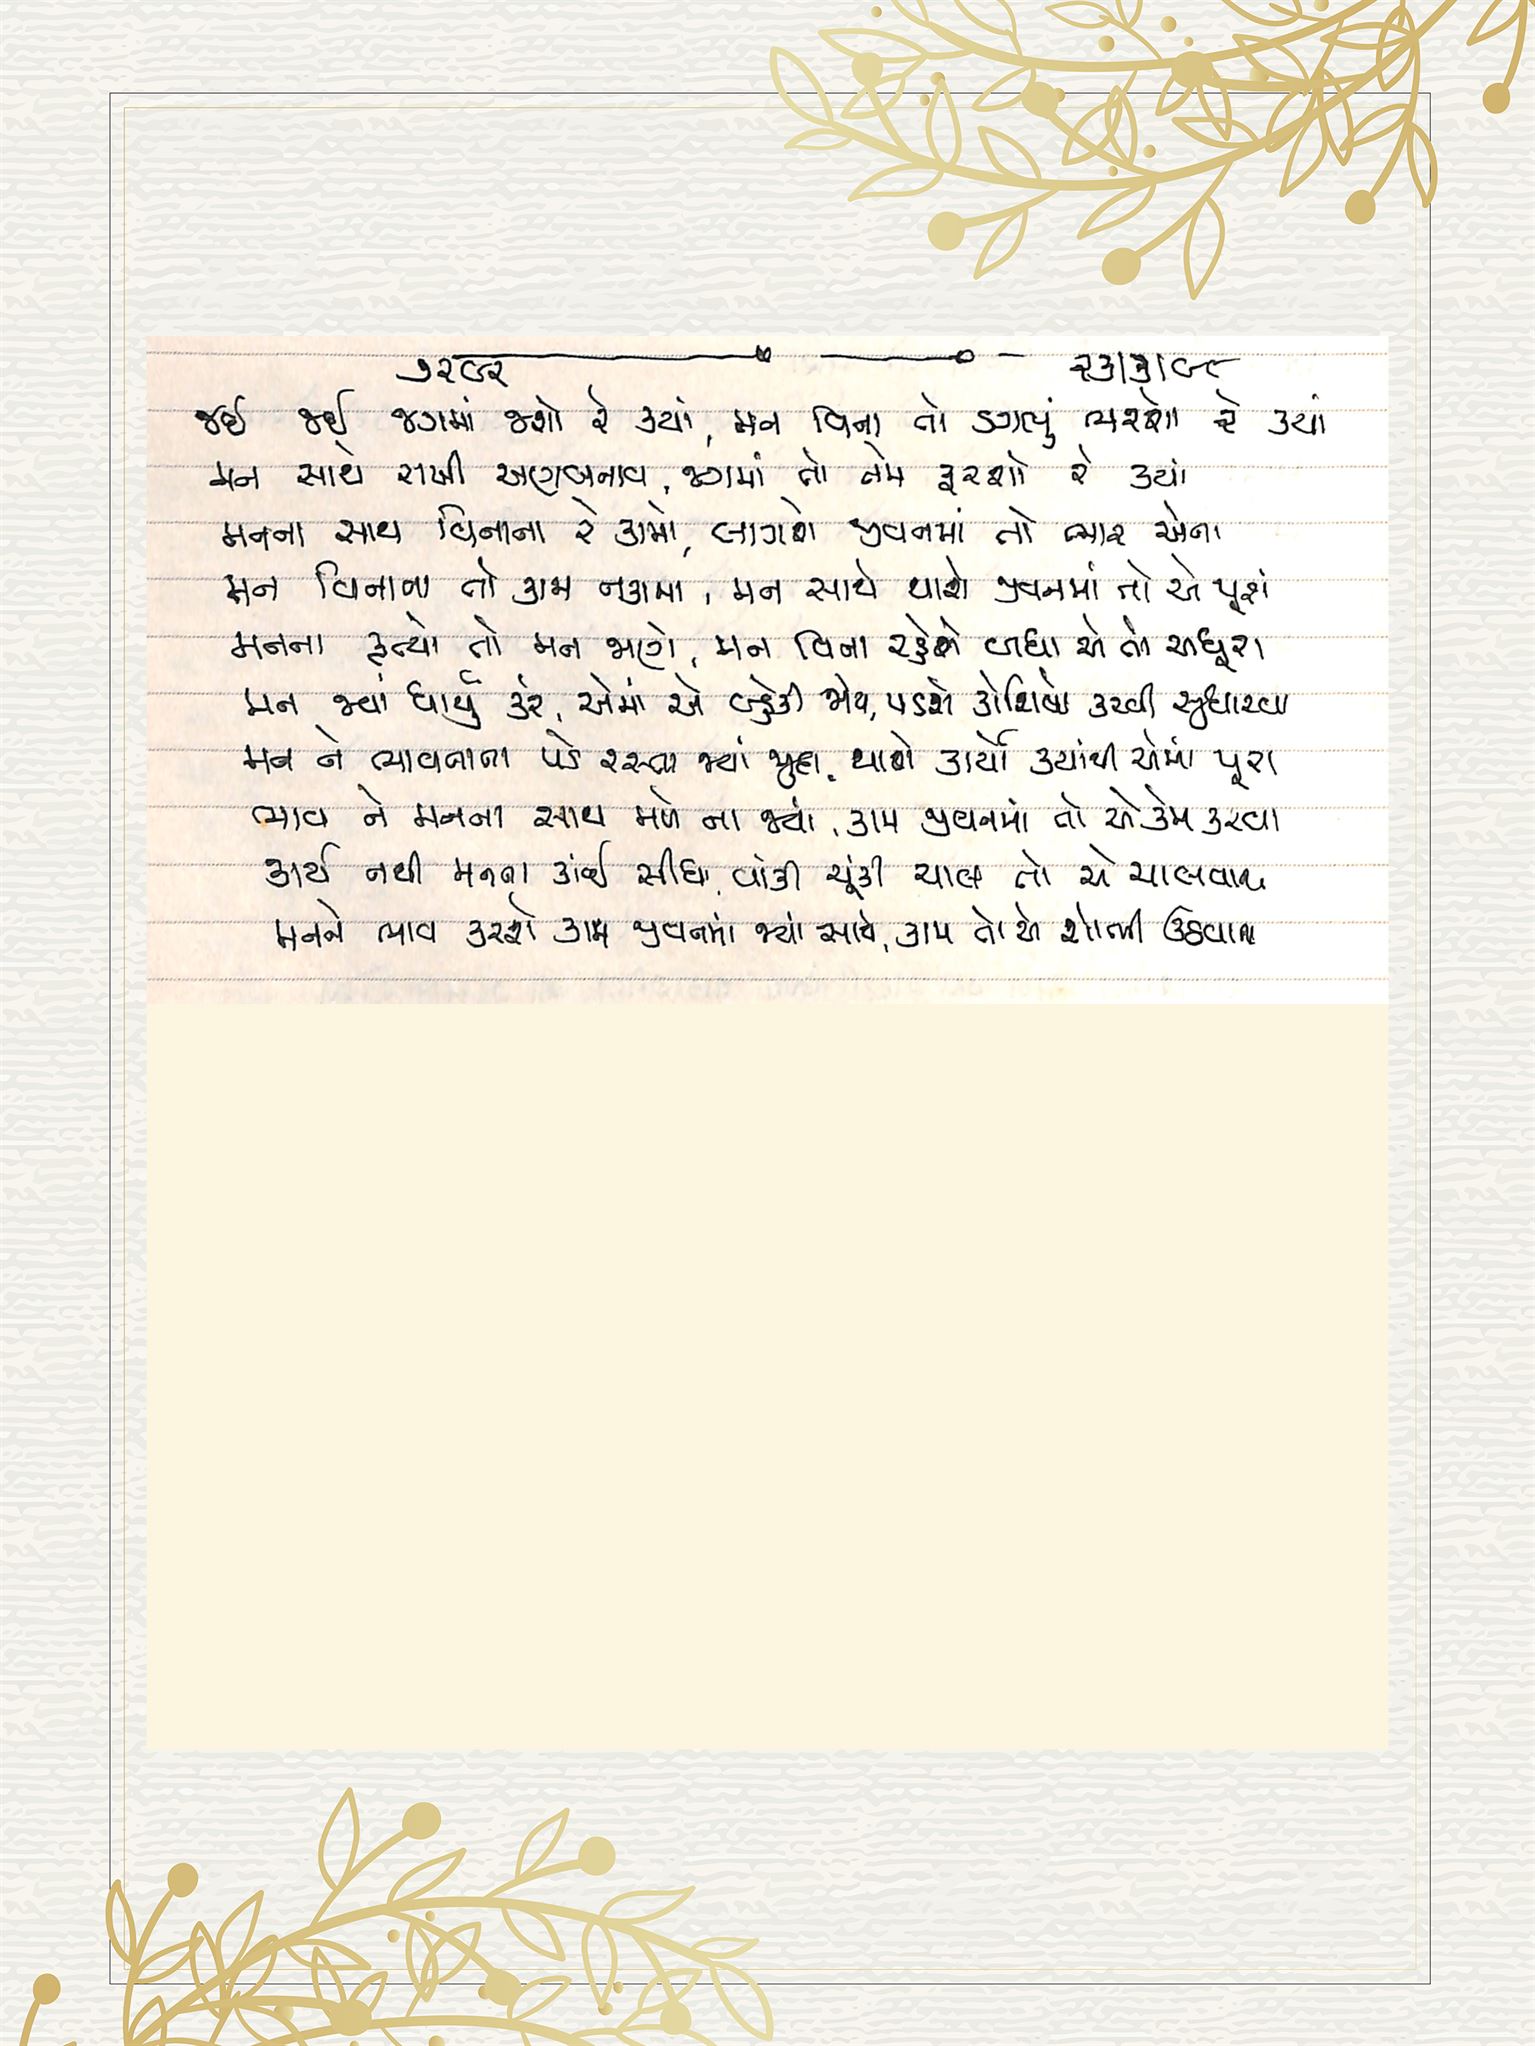 ૭૨૯૨ ૨૩/૩/૯૮
જઈ જઈ જગમાં જશો રે ક્યાં, મન વિના તો ડગલું ભરશો રે ક્યાં
મન સાથે રાખી અણબનાવ, જગમાં તો તેમ ફરશો રે ક્યાં
મનના સાથ વિનાના રે કામો, લાગશે જીવનમાં તો ભાર એના
મન વિનાના તો કામ નકામા, મન સાથે થાશે જીવનમાં તો એ પૂરાં
મનના કૃત્યો તો મન જાણે, મન વિના રહેશે બધા એ તો અધૂરા
મન જ્યાં ધાર્યું કરે, એમાં એ બહેકી જાય, પડશે કોશિશો કરવી સુધારવા
મન ને ભાવનાના પડે રસ્તા જ્યાં જુદા, થાશે કાર્યો ક્યાંથી એમાં પૂરા
ભાવ ને મનના સાથ મળે ના જ્યાં, કામ જીવનમાં તો એ કેમ કરવા
કાર્ય નથી મનના કાંઈ સીધા, વાંકી ચૂંકી ચાલ તો એ ચાલવાના
મનને ભાવ કરશે કામ જીવનમાં જ્યાં સાથે, કામ તો એ શોભી ઉઠવાના